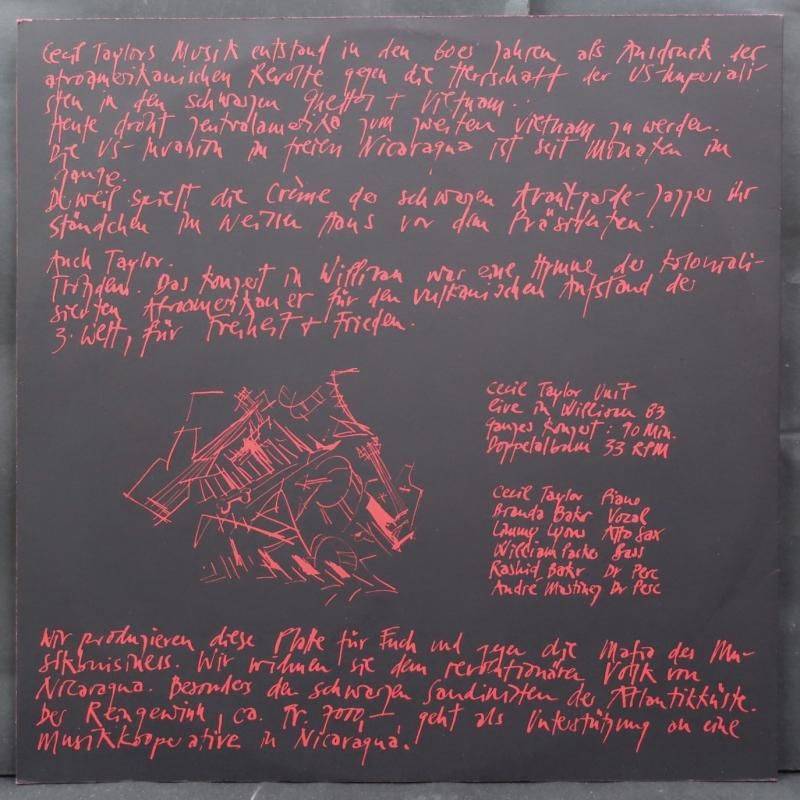 Cecil Taylors Musik entstand in den 60es Jahren als Ausdruck der
afroamerikanischen Revolte gegen die Herrschaft der US-Imperiali-
sten in den schwarzen Ghettos + Vietnam..
Heute droht Zentralamerika zum zweiten Vietnam zu werden.
Die US-Invasion im freien Nicaragua ist seit Monaten im
Gange.
Derweil spielt die Crème der schwarzen Avantgarde-Jazzer ihr
Ständchen im Weissen Haus vor dem Präsidenten.
Auch Taylor.
Trotzdem. Das Konzert in Willisau war eine Hymne der koloniali-
sierten Afroamerikaner für den vulkanischen Aufstand der
3. Welt, für Freiheit + Frieden.
Cecil Taylor Unit
live in Willisau 83
ganzes Konzert: 90 Min.
Doppelalbum 33 RPM
Cecil Taylor Piano
Brenda Bakr Vocal
Jimmy Lyons Alto Sax
William Parker Bass
Rashid Bakr Dr Perc
André Martinez Dr Perc
Wir produzieren diese Platte für Euch und gegen die Mafia des Mu-
sikbuisiness. Wir widmen sie dem revolutionären Volk von
Nicaragua. Besonders den schwarzen Sandinisten der Atlantikküste.
Der Reingewinn, ca. Fr. 7000,- geht als Unterstützung an eine
Musikkooperative in Nicaragua.